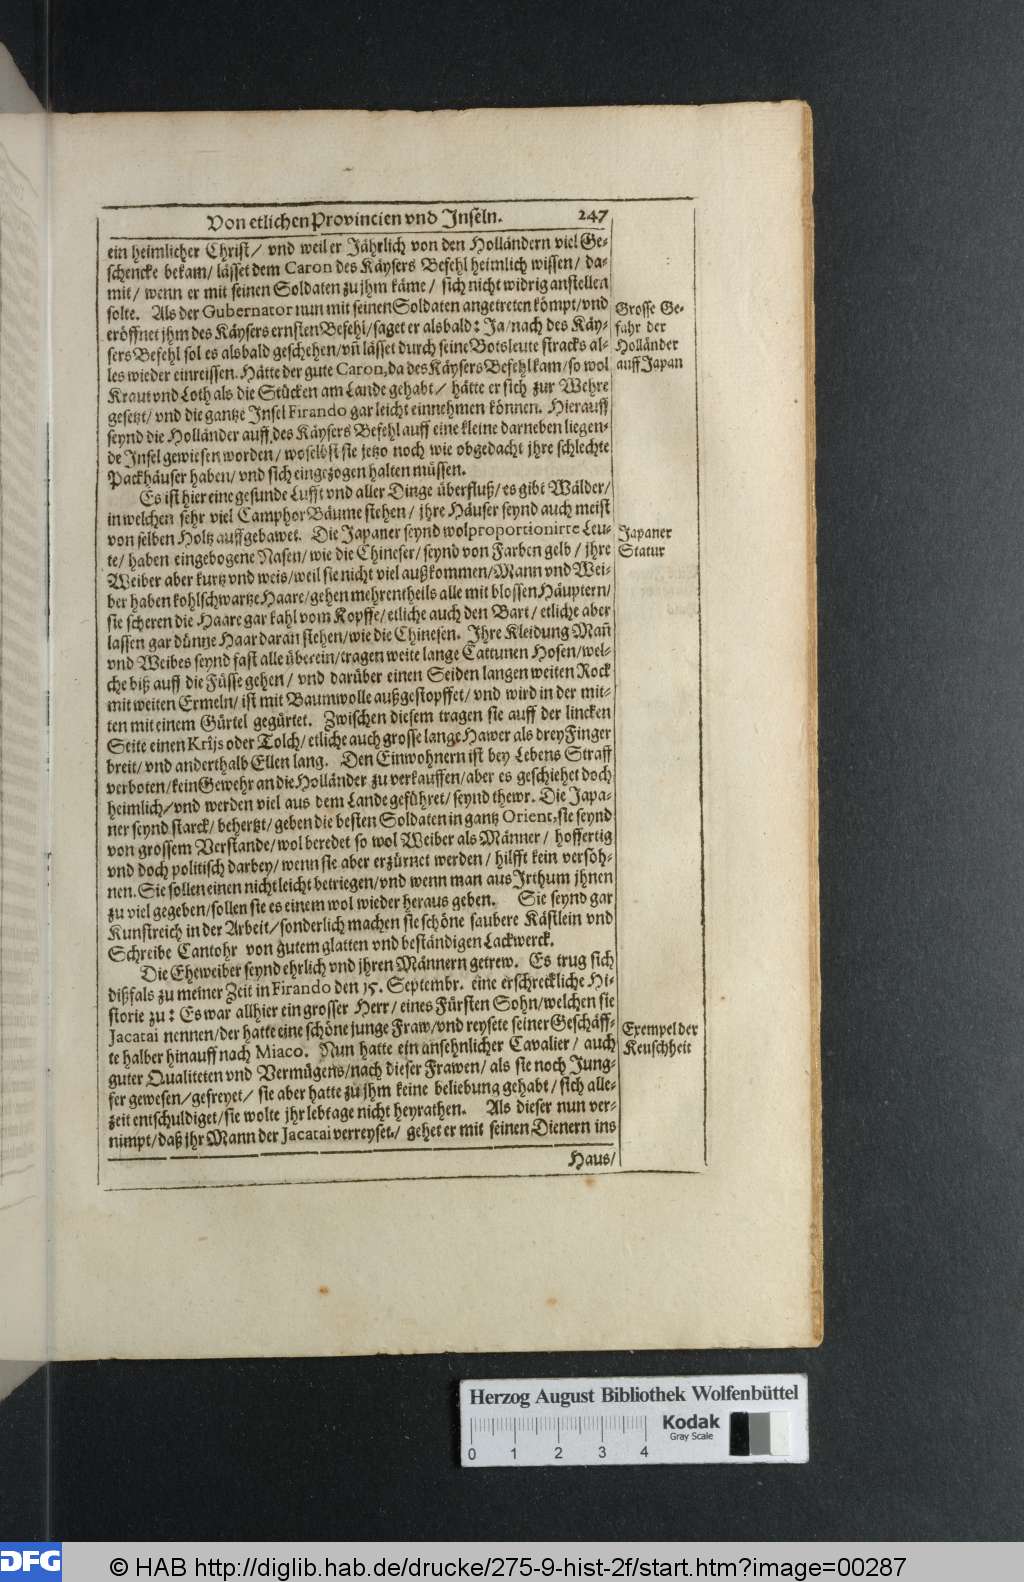 Von etlichen Provincien vnd Inseln. 247
ein heimlicher Christ/ vnd weil er Jährlich von den Holländern viel Ge-
schencke bekam/ lässet dem Caron des Käysers Befehl heimlich wissen/ da-
mit/ wenn er mit seinen Soldaten zu jhm käme/ sich nicht widrig anstellen
solte. Als der Gubernator nun mit seinen Soldaten angetreten kömpt/ vnd
eröffnet jhm des Käysers ernsten Befehl/ saget er alsbald: Ja/ nach des Käy-
sers Befehl sol es alsbald geschehen/ vñ lässet durch seine Botsleute stracks al-
les wieder einreissen. Hätte der gute Caron, da des Käysers Befehl kam/ so wol
Kraut vnd Loth als die Stücken am Lande gehabt/ hätte er sich zur Wehre
gesetzt/ vnd die gantze Insel Firando gar leicht einnehmen können. Hierauff
seynd die Holländer auff des Käysers Befehl auff eine kleine darneben liegen-
de Insel gewiesen worden/ woselbst sie jetzo noch wie obgedacht jhre schlechte
Packhäuser haben/ vnd sich eingezogen halten müssen.
Es ist hier eine gesunde Lufft vnd aller Dinge überfluß/ es gibt Wälder/
in welchen sehr viel Camphor Bäume stehen/ jhre Häuser seynd auch meist
von selben Holtz auffgebawet. Die Japaner seynd wolproportionirte Leu-
te/ haben eingebogene Nasen/ wie die Chineser/ seynd von Farben gelb/ jhre
Weiber aber kurtz vnd weis/ weil sie nicht viel außkommen/ Mann vnd Wei-
ber haben kohlschwartze Haare/ gehen mehrentheils alle mit blossen Häuptern/
sie scheren die Haare gar kahl vom Kopffe/ etliche auch den Bart/ etliche aber
lassen gar dünne Haar daran stehen/ wie die Chinesen. Ihre Kleidung Mañ
vnd Weibes seynd fast alle überein/ tragen weite lange Cattunen Hosen/ wel-
che biß auff die Füsse gehen/ vnd darüber einen Seiden langen weiten Rock
mit weiten Ermeln/ ist mit Baumwolle außgestopffet/ vnd wird in der mit-
ten mit einem Gürtel gegürtet. Zwischen diesem tragen sie auff der lincken
Seite einen Krijs oder Tolch/ etliche auch grosse lange Hawer als drey Finger
breit/ vnd anderthalb Ellen lang. Den Einwohnern ist bey Lebens Straff
verboten/ kein Gewehr an die Holländer zu verkauffen/ aber es geschiehet doch
heimlich/ vnd werden viel aus dem Lande geführet/ seynd thewr. Die Japa-
ner seynd starck/ behertzt/ geben die besten Soldaten in gantz Orient, sie seynd
von grossem Verstande/ wol beredet so wol Weiber als Männer/ hoffertig
vnd doch politisch darbey/ wenn sie aber erzürnet werden/ hilfft kein versöh-
nen. Sie sollen einen nicht leicht betriegen/ vnd wenn man aus Irthum jhnen
zu viel gegeben/ sollen sie es einem wol wieder heraus geben. Sie seynd gar
Kunstreich in der Arbeit/ sonderlich machen sie schöne saubere Kästlein vnd
Schreibe Cantohr von gutem glatten vnd beständigen Lackwerck.
Die Eheweiber seynd ehrlich vnd jhren Männern getrew. Es trug sich
dißfals zu meiner Zeit in Firando den 15. Septembr. eine erschreckliche Hi-
storie zu: Es war allhier ein grosser Herr/ eines Fürsten Sohn/ welchen sie
Jacatai nennen/ der hatte eine schöne junge Fraw/ vnd reysete seiner Geschäff-
te halber hinauff nach Miaco. Nun hatte ein ansehnlicher Cavalier/ auch
guter Qualiteten vnd Vermügens/ nach dieser Frawen/ als sie noch Jung-
fer gewesen/ gefreyet/ sie aber hatte zu jhm keine beliebung gehabt/ sich alle-
zeit entschuldiget/ sie wolte jhr lebtage nicht heyrathen. Als dieser nun ver-
nimpt/ daß jhr Mann der Jacatai verreyset/ gehet er mit seinen Dienern ins
Haus/
Grosse Ge-
fahr der
Holländer
auff Japan
Japaner
Statur
Exempel der
Keuschheit
Herzog August Bibliothek Wolfenbüttel
0 1 2 3 4
Kodak
Gray Scale
DFG
© HAB http://diglib.hab.de/drucke/275-9-hist-2f/start.htm?image=00287